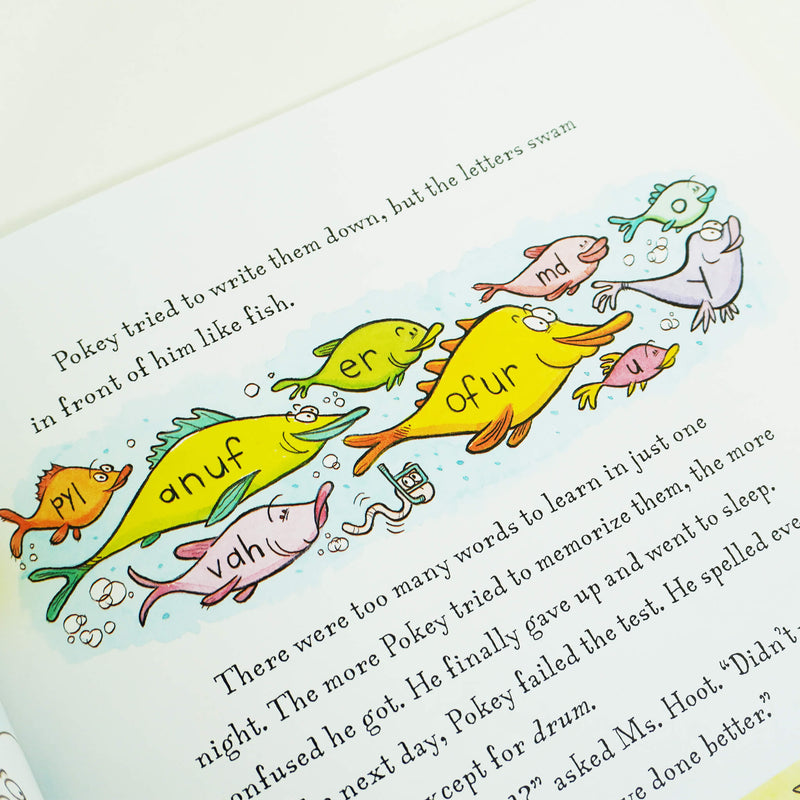 Pokey tried to write them down, but the letters swam
in front of him like fish.
o
md
er
ofur
u
anuf
pyl
vah
There were too many words to learn in just one
night. The more Pokey tried to memorize them, the more
confused he got. He finally gave up and went to sleep.
next day, Pokey failed the test. He spelled
except for drum.
asked Ms. Hoot. “Didn’t
done better.”